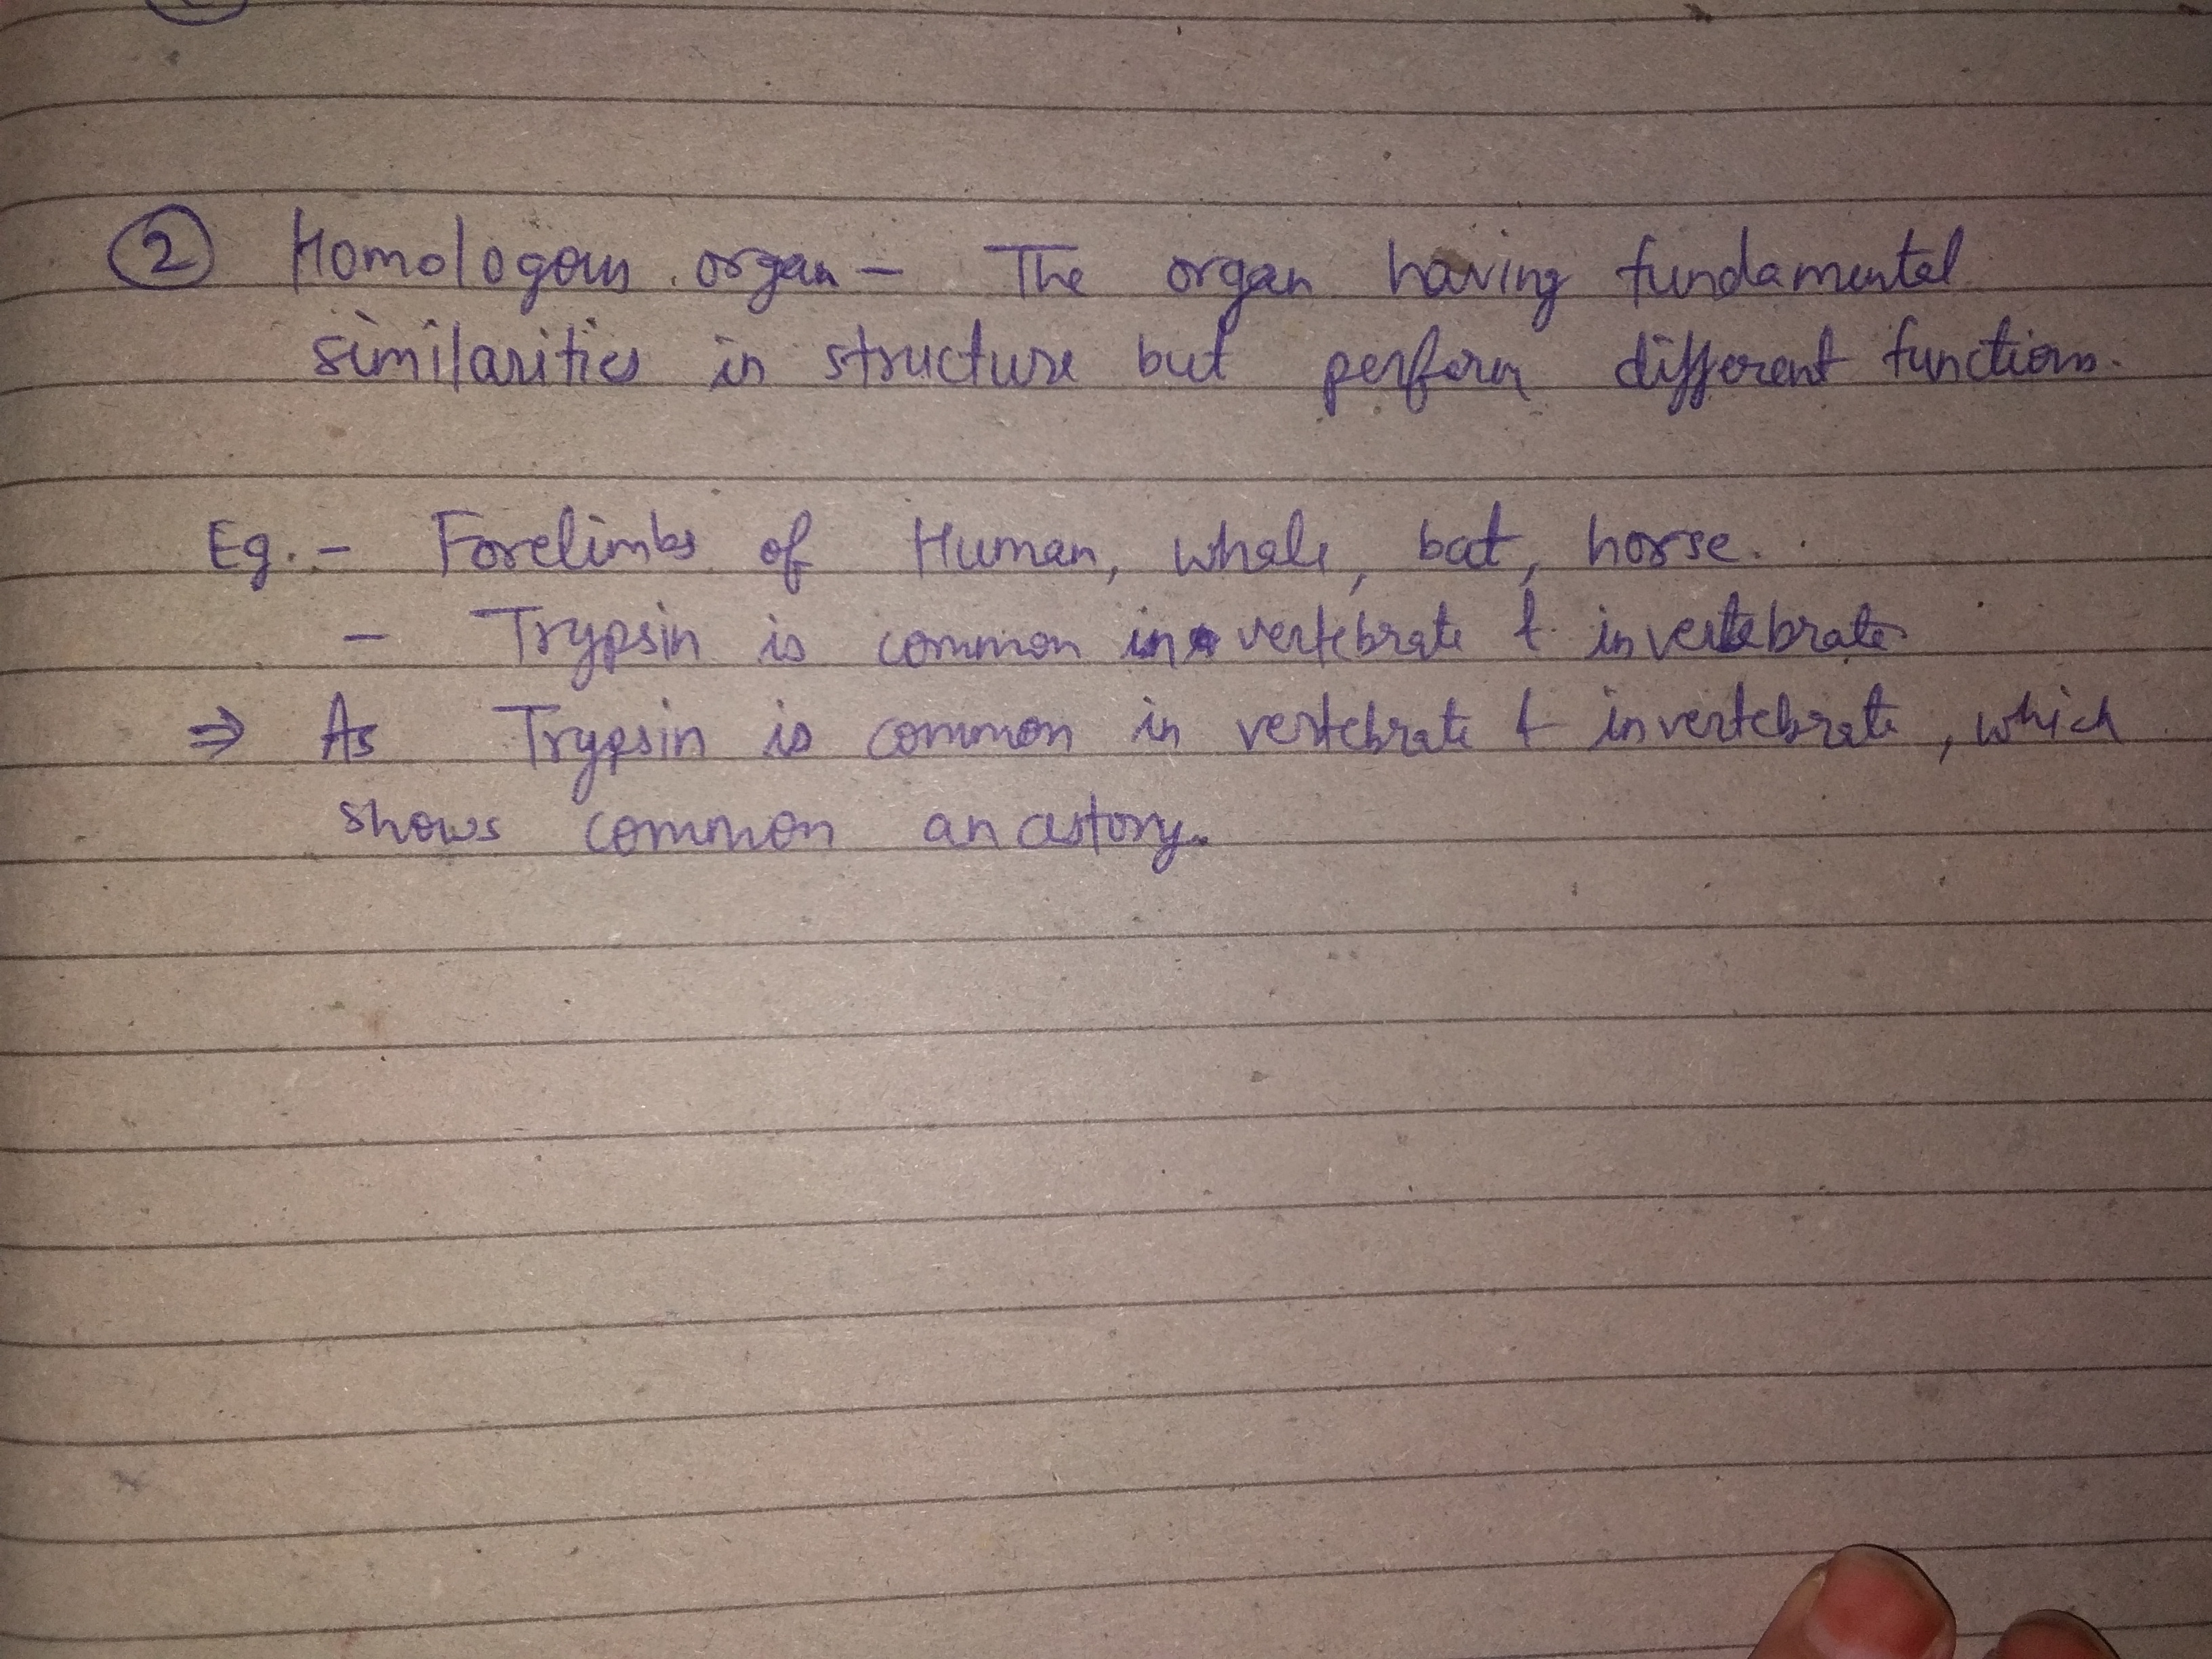 ② Homologous organ - The organ having fundamental
similarities in structure but perform different functions.
Eg. - Forelimbs of Human, whale, bat, horse.
- Trypsin is common in vertebrate & invertebrate
⇒ As Trypsin is common in vertebrate & invertebrate, which
shows common ancestory.